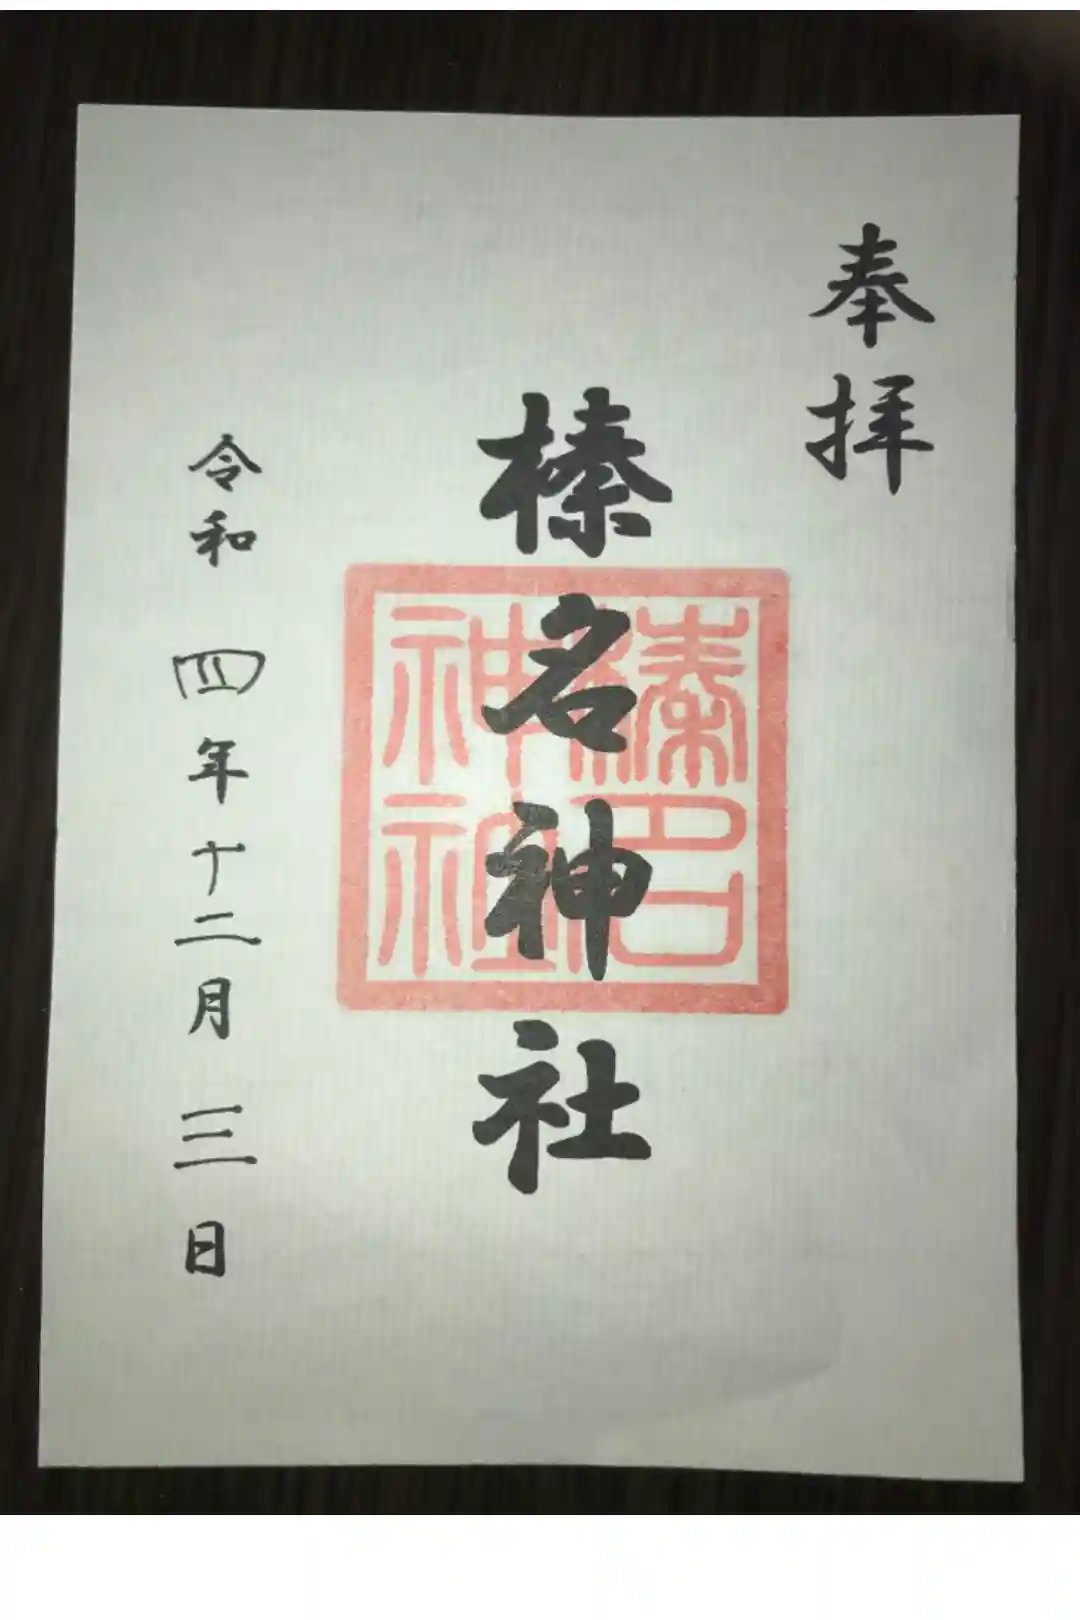 奉拝
榛名神社
榛名
神社
令和四年十二月三日